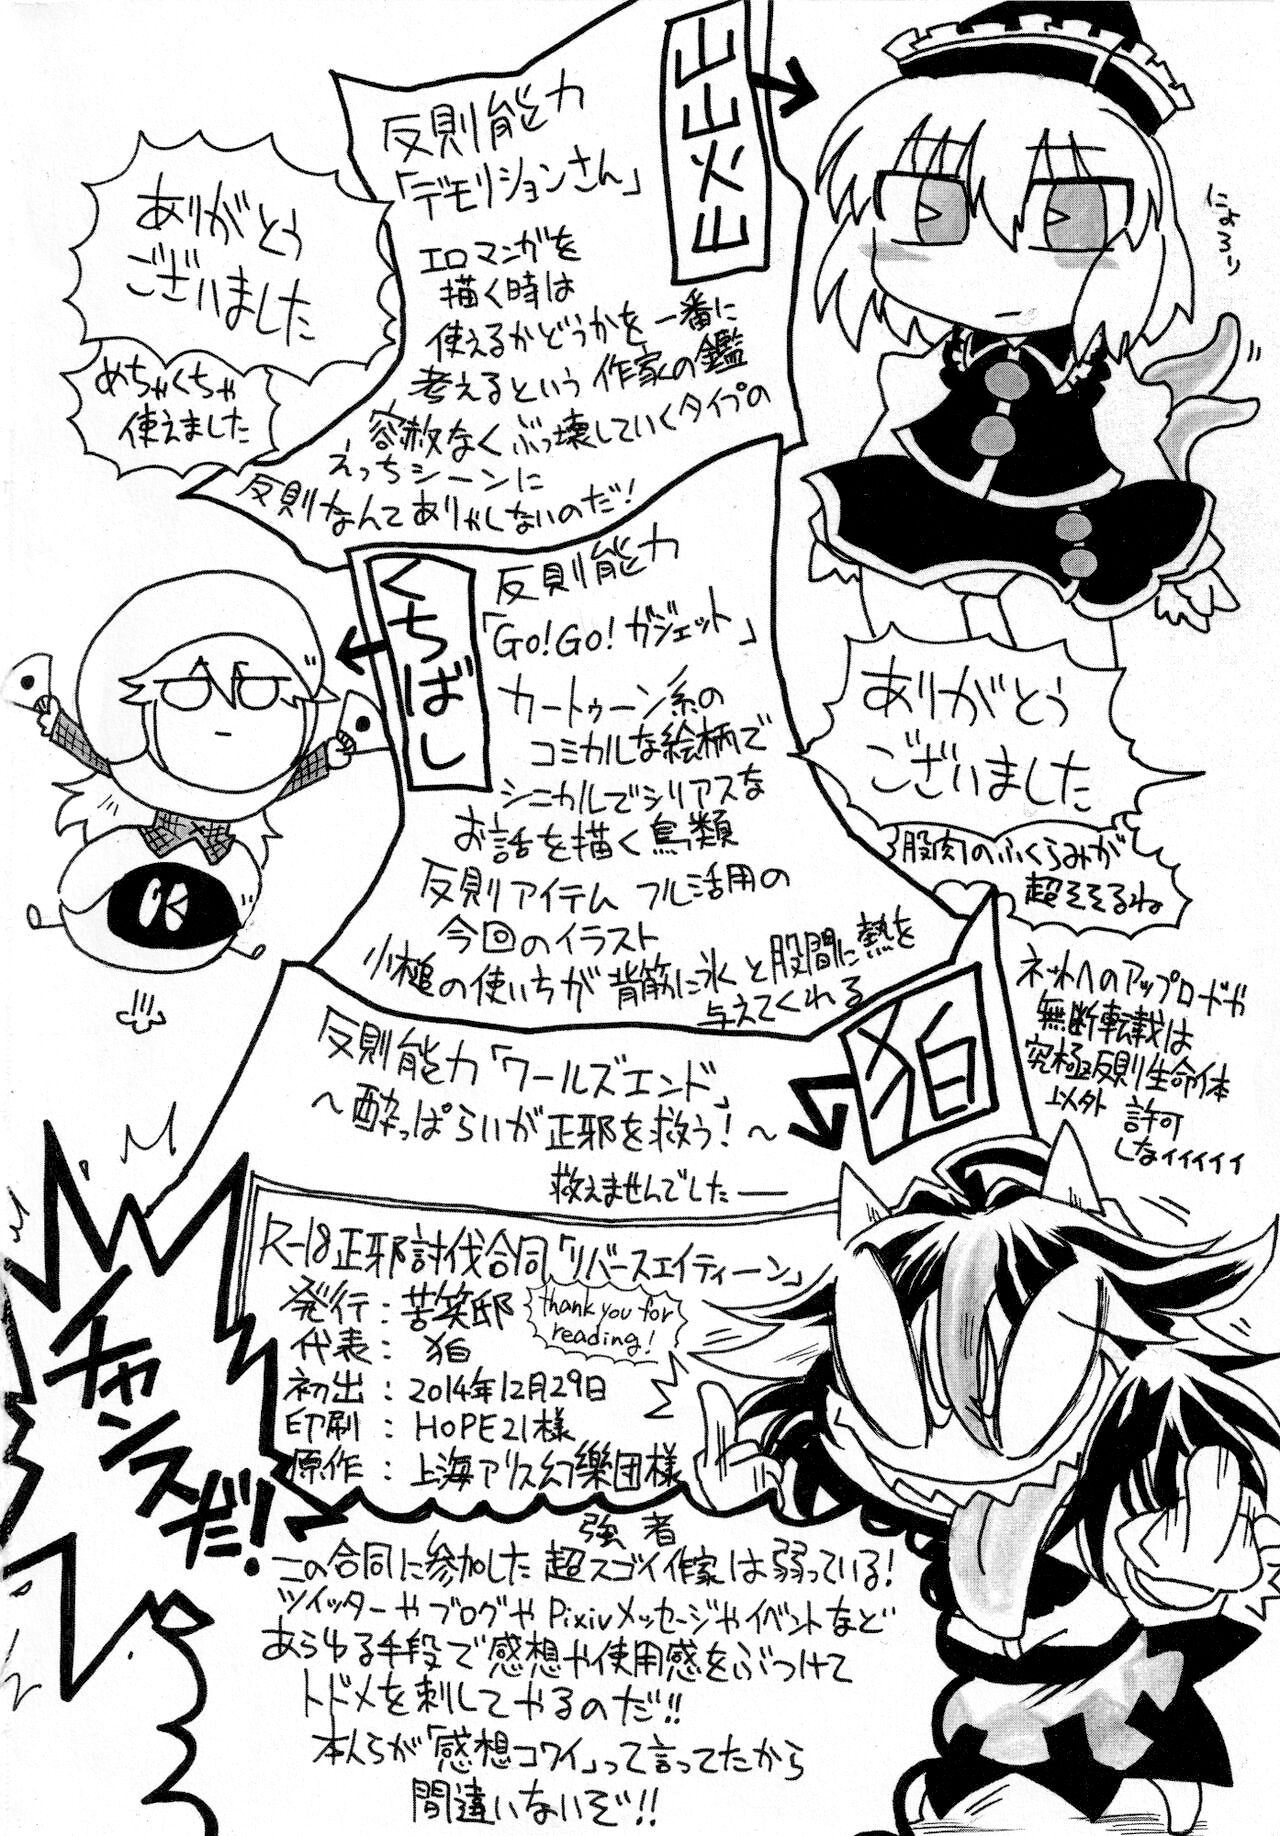 山山火山
反則能力
「デモリションさん」
エロマンガを
描く時は
使えるかどうかを一番に
考えるという作家の鑑
容赦なくぶっ壊していくタイプの
えっちシーンに
反則なんてありゃしないのだ!
ありがとう
ございました
めちゃくちゃ
使えました
にょろり
くちばし
反則能力
「GO!GO!ガジェット」
カートゥーン系の
コミカルな絵柄で
シニカルでシリアスな
お話を描く鳥類
反則アイテム フル活用の
今回のイラスト
小槌の使いちが背筋に氷と股間に熱を
与えてくれる
ありがとう
ございました
股肉のふくらみが
超そそるね
狛
反則能力「ワールズエンド」
～酔っぱらいが正邪を救う!～
救えませんでしたー
ネットへのアップロードや
無断転載は
究極反則生命体
以外 許可
しなィィィィィ
R-18正邪討伐合同「リバースエイティーン」
発行:苦笑邸
代表:狛
初出:2014年12月29日
印刷:HOPE21様
原作:上海アリス幻樂団様
thank you for
reading!
チャンスだ!
強者
この合同に参加した超スゴイ作家は弱っている!
ツイッターやブログやPixivメッセージやイベントなど
あらゆる手段で感想や使用感をぶつけて
トドメを刺してやるのだ!!
本人らが「感想コワイ」って言ってたから
間違いないぞ!!